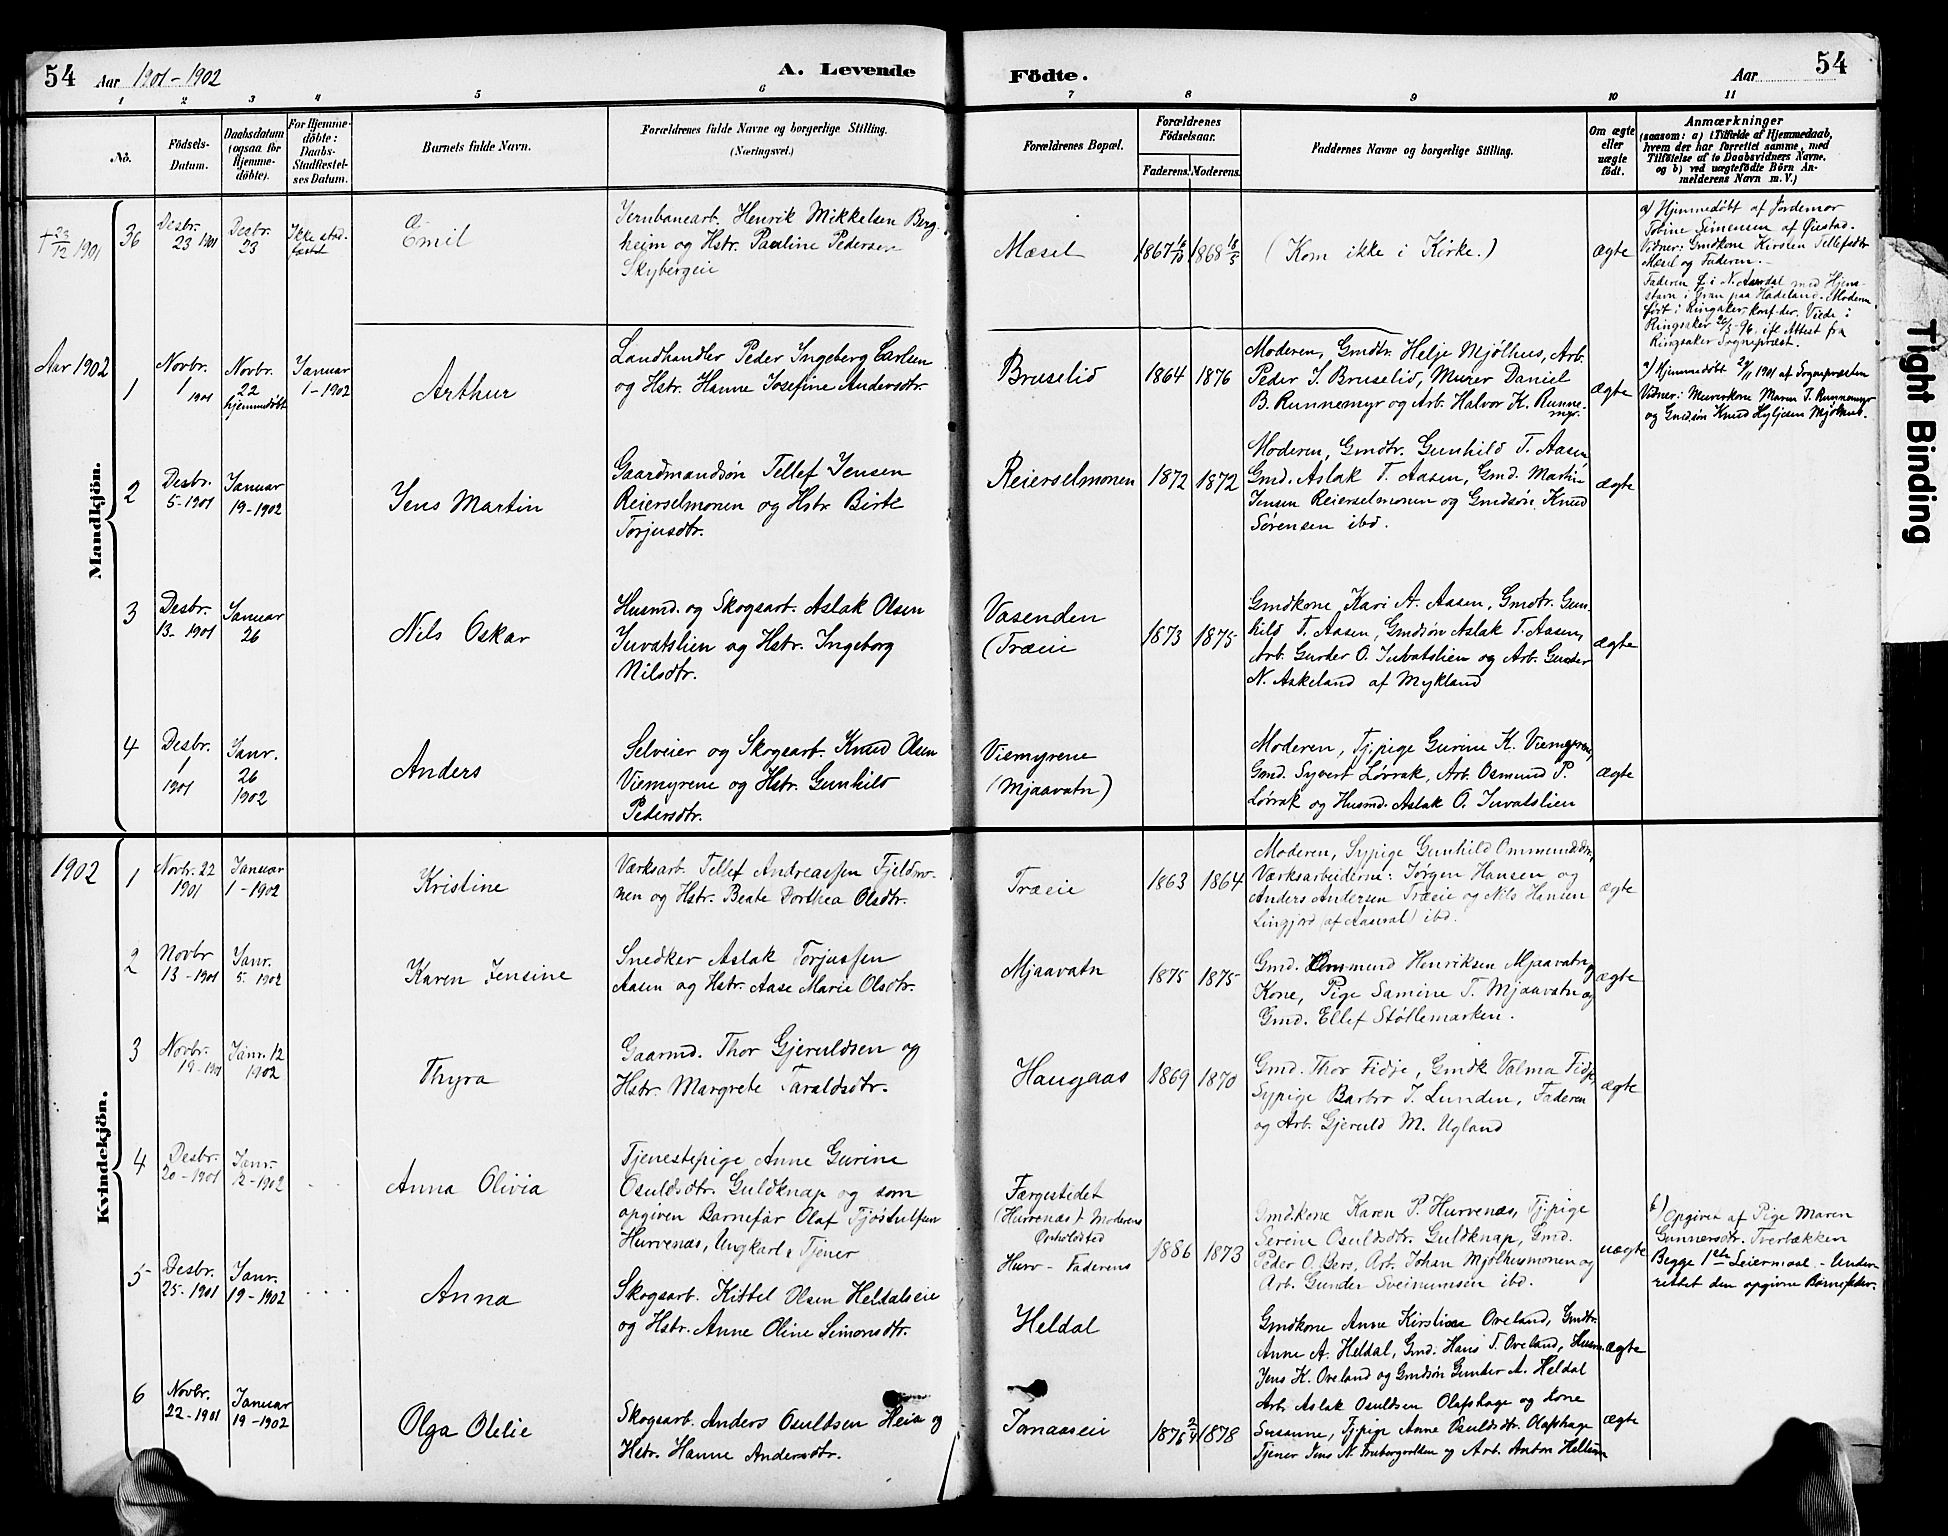 54 Aar 1901-1902 A. Levende Födte. Aar 54
1 2 3 4 5 6 7 8 9 10 11
No.
Födsels-
Datum.
Daabsdatum
(ogsaa for
Hjemme-
döbte).
For Hjemme-
döbte:
Daabs-
Stadfæstel-
ses Datum.
Barnets fulde Navn.
Forældrenes fulde Navne og borgerlige Stilling.
(Næringsvei.)
Forældrenes Bopæl.
Forældrenes
Födselsaar.
Faderens. Moderens.
Faddernes Navne og borgerlige Stilling.
Om ægte
eller
uægte
födt.
Anmærkninger
(saasom: a) i Tilfælde af Hjemmedaab,
hvem der har forrettet samme, med
Tilföielse af to Daabsvidners Navne,
og b) ved uægtefödte Börn An-
melderens Navn m. V.)
Mandkjön.
† 23/12 1901
36
Desbr.
23 1901
Desbr.
23
Ikke stad-
fæstet
Emil
Jernbanearb. Henrik Mikkelsen Berg-
heim og Hstr. Pauline Pedersen
Skybergeie
Mæsel
1867 1868
(Kom ikke i Kirke.)
ægte
a) Hjemmedøbt af Jordemor
Tobine Simensen af Øiestad.
Vidner: Gmdkone Kirsten Tellefsdtr
Mæsel og Faderen.
Faderen f. i N. Aurdal med Hjem-
stavn i Gran paa Hadeland. Moderen
født i Ringsaker konf. der. Viede i
Ringsaker 96. ifl. Attest fra
Ringsaker Sognepræst.
Aar 1902
1
Novbr.
1 1901
Novbr.
22
hjemmedøbt
Januar
1-1902
Arthur
Landhandler Peder Ingeberg Carlsen
og Hstr. Hanne Josefine Andersdtr.
Bruselid
1864 1876
Moderen, Gmdtr. Helje Mjølhus, Arb.
Peder J. Bruselid, Murer Daniel
B. Runnemyr og Arb. Halvor K. Runne-
myr.
ægte
a) Hjemmedøbt 1901 af Sognepræsten
Vidner: Murerkone Maren T. Runnemyr
og Gmdsøn Knud Hyljesen Mjølhus.
2
Desbr.
5-1901
Januar
19-1902
Jens Martin
Gaardmandsøn Tellef Jensen
Reierselmonen og Hstr. Birte
Torjusdtr.
Reierselmonen
1872 1872
Moderen, Gmdtr. Gunhild T. Aasen
Gmd. Aslak T. Aasen, Gmd. Martin
Jensen Reierselmonen og Gmdsøn Knud
Sørensen ibd.
ægte
3
Desbr.
13-1901
Januar
26
Nils Oskar
Husmd. og Skogsarb. Aslak Olsen
Juvatslien og Hstr. Ingeborg
Nilsdtr.
Vasenden
(Træeie
1873 1875
Gmdkone Kari A. Aasen, Gmdtr. Gun-
hild T. Aasen, Gmdsøn Aslak T. Aasen,
Arb. Gunder O. Juvatslien og Arb. Gunder
N. Askeland af Mykland
ægte
4
Desbr.
1
1901
Janr.
26
1902
Anders
Selveier og Skogsarb. Knud Olsen
Viemyrene og Hstr. Gunhild
Pedersdtr.
Viemyrene
(Mjaavatn)
Moderen, Tj.pige Gurine K. Viemyrene,
Gmd. Syvert Løvrak, Arb. Osmund P.
Løvrak og Husmd. Aslak O. Juvatslien
ægte
Kvindekjön.
1902
1
Novbr. 22
1901
Januar
1-1902
Kristine
Værksarb. Tellef Andreassen Fjeldmo-
nen og Hstr. Beate Dorthea Olsdtr.
Træeie
1863 1864
Moderen, Sypige Gunhild Ommundsdtr,
Værksarbeiderne: Jørgen Hansen og
Anders Andersen Træeie og Nils Hansen
Lingjord (af Aamdal) ibd.
ægte
2
Novbr
13-1901
Janr.
5-1902
Karen Jensine
Snedker Aslak Torjussen
Aasen og Hstr. Aase Marie Olsdtr.
Mjaavatn
1875 1875
Gmd. Ommund Henriksen Mjaavatn og
Kone, Pige Samine T. Mjaavatn og
Gmd. Ellef Støllemarken.
ægte
3
Novbr.
19-1901
Janr. 12
1902
Thyra
Gaarmd. Thor Gjeruldsen og
Hstr. Margrete Taraldsdtr.
Haugaas
1869 1870
Gmd. Thor Fidje, Gmdk Valma Fidje
Sypige Barbro J. Lunden, Faderen
og Arb. Gjeruld M. Ugland
ægte
4
Desbr.
20-1901
Janr.
12-1902
Anna Olivia
Tjenestepige Anne Gurine
Osuldsdtr. Guldknap og som
opgiven Barnefar Olaf Tjøstulfsen
Hurvenæs, Ungkarl &amp; Tjener
Færgestedet
(Hurvenæs) Moderens
Opholdsted
Hurv - Faderens
1886 1873
Gmdkone Karen P. Hurvenæs, Tjpige
Serine Osuldsdtr. Guldknap, Gmd.
Peder O. Bers, Arb. Johan Mjølhusmonen og
Arb. Gunder Sveinumsen ibd.
uægte
b) Opgivet af Pige Maren
Gunnersdtr. Tverbækken
Begge 1ste Leiermaal - Under-
rettet den opgivne Barnefader.
5
Desbr.
25-1901
Janr.
19-1902
Anna
Skogsarb. Kittel Olsen Heldalseie
og Hstr. Anne Oline Simonsdtr.
Heldal
Gmdkone Anne Kirstine Oveland, Gmdtr.
Anne A. Heldal, Gmd. Hans T. Oveland, Husm.
Jens K. Oveland og Gmdsøn Gunder A. Heldal
ægte
6
Novbr.
22-1901
Januar
19-1902
Olga Otelie
Skogsarb. Anders Osuldsen Heia og
Hstr. Hanne Andersdtr.
Jonaaseie
1876 1878
Arb. Aslak Osuldsen Olafshage og Kone
Susanne, Tjpige Anne Osuldsdtr. Olafshage
Tjener Jens N. og Arb. Anton
ægte
Tight Binding